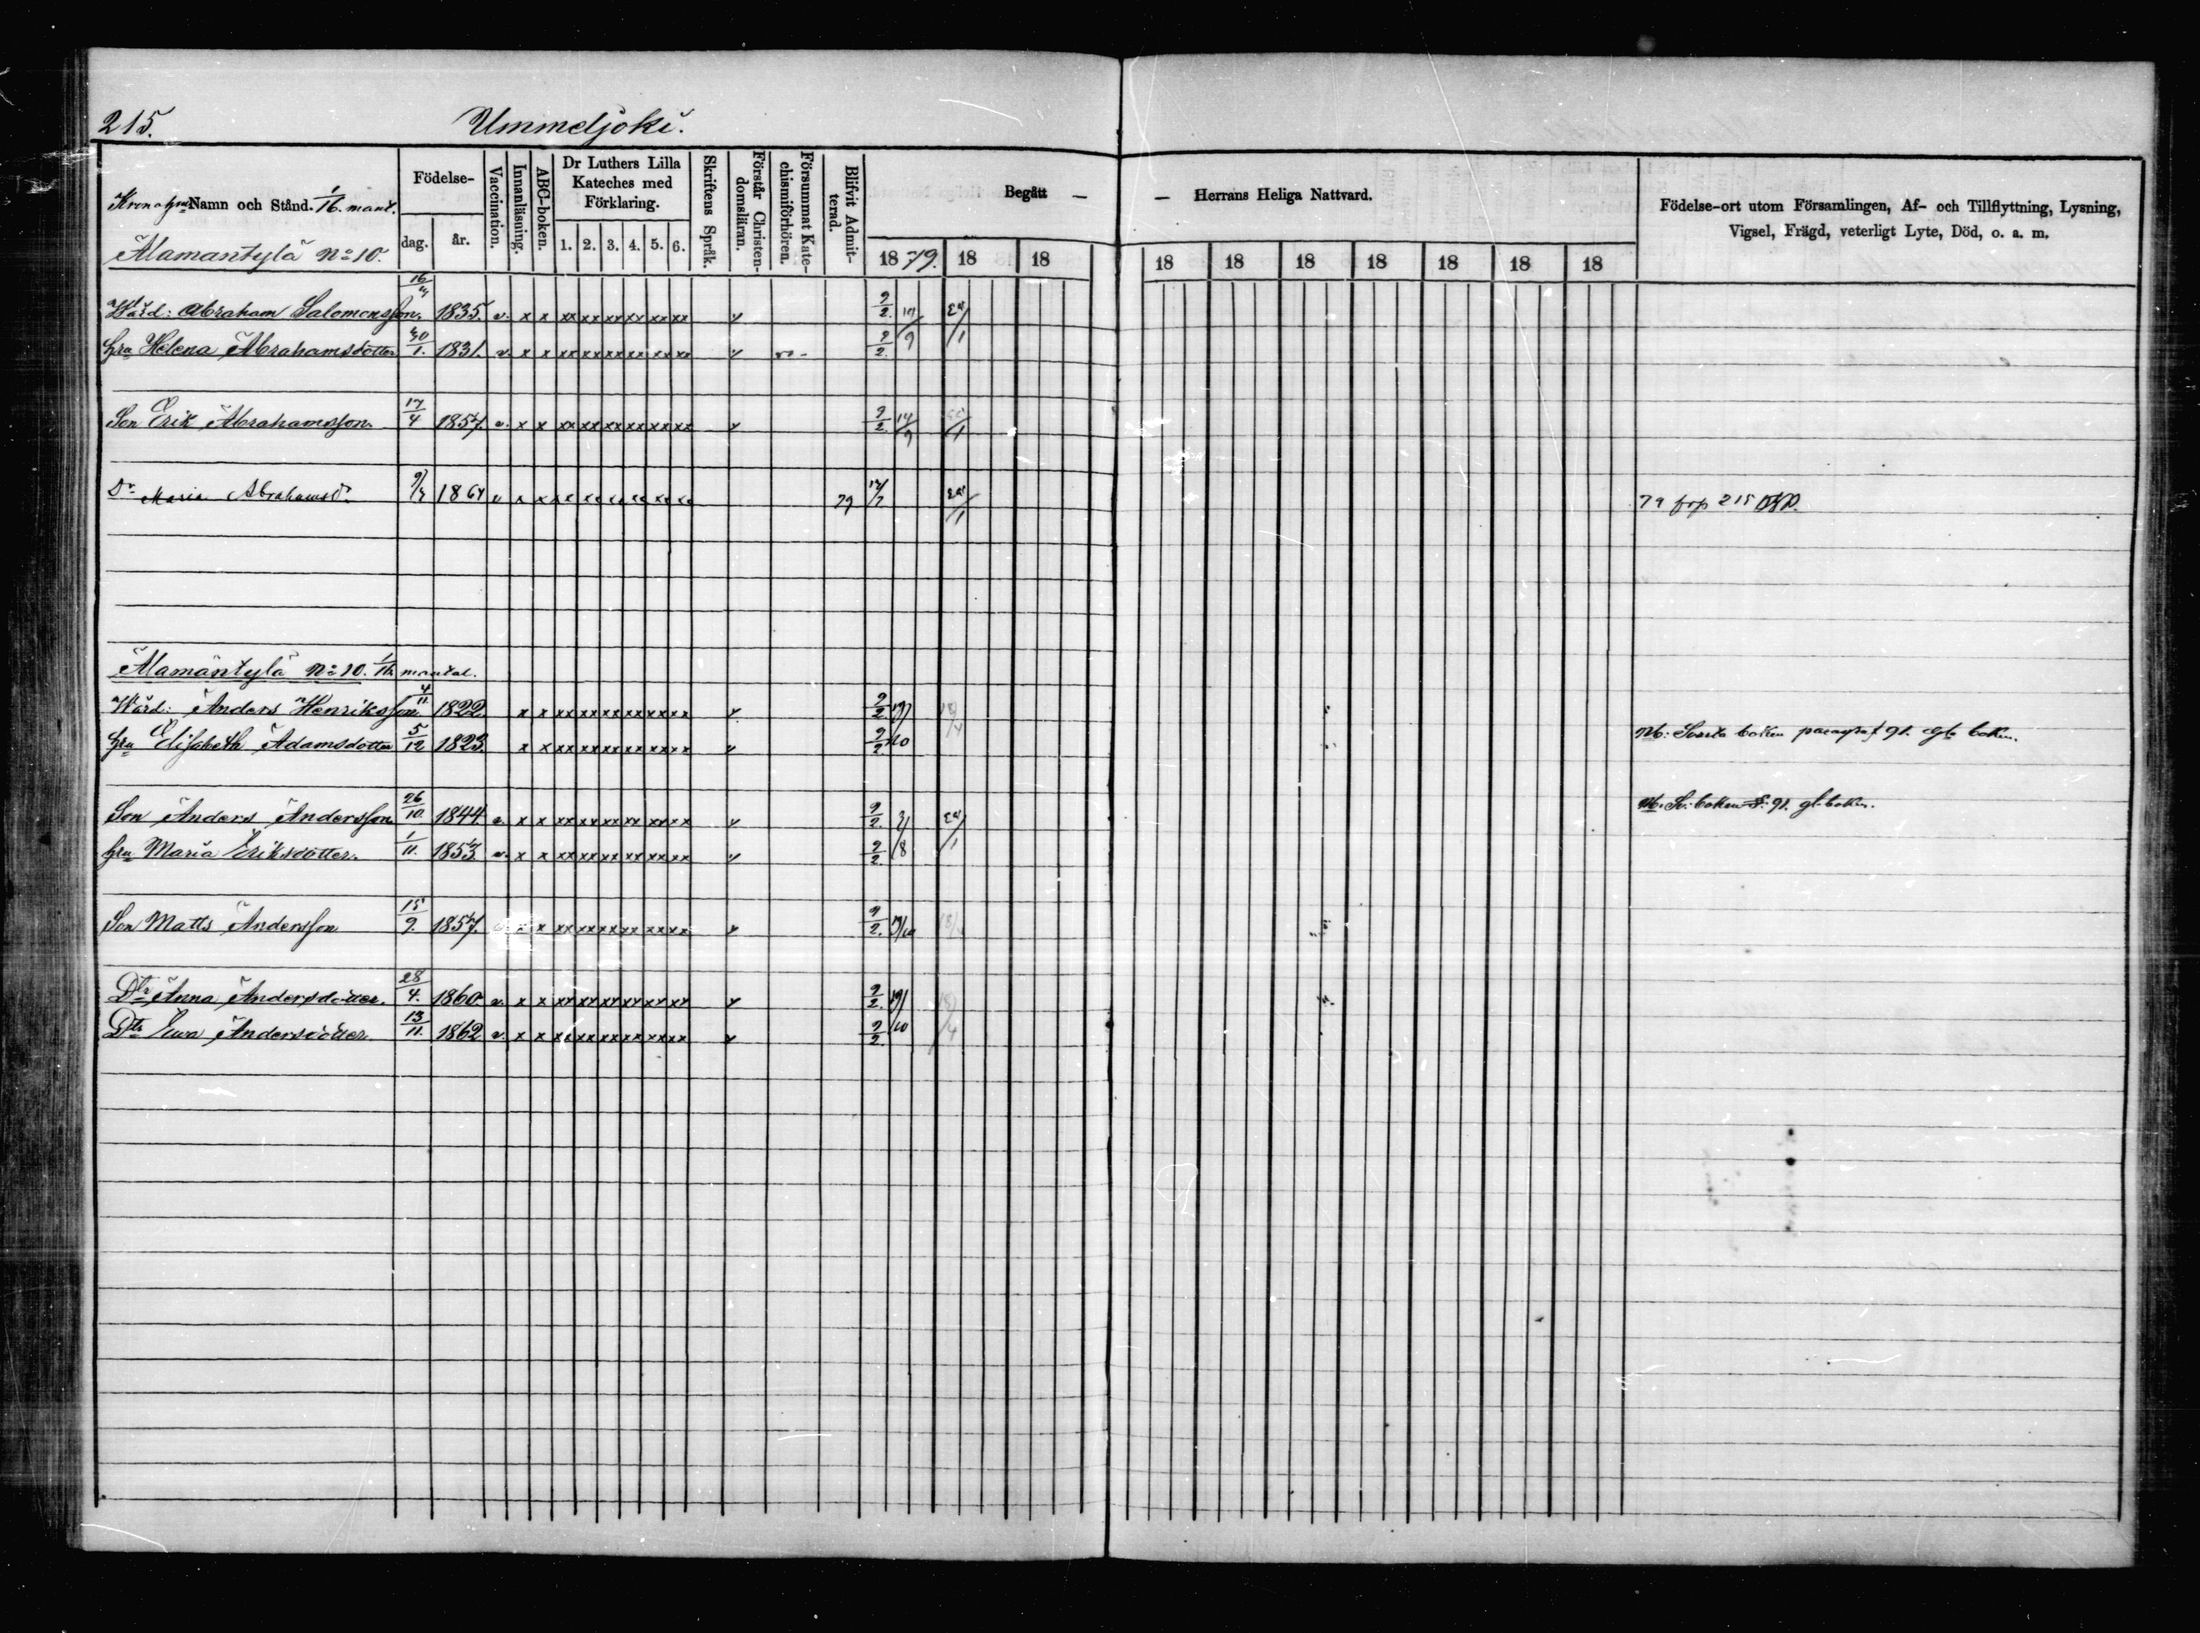 215. Ummeljoki.
Namn och Stånd. 1/16 mant.
Födelse-
dag. år.
Vaccination.
Innanläsning.
ABC-boken.
Dr Luthers Lilla
Kateches med
Förklaring.
1. 2. 3. 4. 5. 6.
Skriftens Språk.
Förstår Christen-
domsläran.
Försummat Kate-
chismiförhören.
Blifvit Admit-
terad.
Begått —
— Herrans Heliga Nattvard.
1879. 18 18 18 18 18 18 18 18 18
Födelse-ort utom Församlingen, Af- och Tillflyttning, Lysning,
Vigsel, Frägd, veterligt Lyte, Död, o. a. m.
Alamäntylä No 10.
Wärd: Abraham Salomonsson. 1835. v. x x xx xx xx xx xx xx 9/2.
hru Helena Abrahamsdotter 30/1. 1831. v. x x xx xx xx xx xx xx 9/2.
Son Erik Abrahamsson. 17/4 1857. v. x x xx xx xx xx xx xx 9/2. 14/9
Dr Maria Abrahamsd 1864 v x x 79 79 frp 215
Alamäntylä No 10. 1/16 mantal.
Wärd: Anders Henriksson 4/11 1822. x x xx xx xx xx xx xx 9/2. 19/10
hru Elisabeth Adamsdotter 5/12 1823. x x xx xx xx xx xx xx 9/2 Nb: Svarta boken paragraf 91. gla boken.
Son Anders Andersson 26/10. 1844. v. x x xx xx xx xx xx xx 9/2. Nb. Sv: boken §: 91. gl. boken.
hru Maria Eriksdotter. 1/11. 1853. v. x x xx xx xx xx xx xx 9/2.
Son Matts Andersson 15/9. 1857. x x xx xx xx xx xx xx 9/2. 19/10
Dtr Anna Andersdotter. 28/4. 1860. v. x x xx xx xx xx xx xx 9/2. 19/10
Dtr Ewa Andersdotter. 13/11. 1862 v. x x xx xx xx xx xx xx 9/2